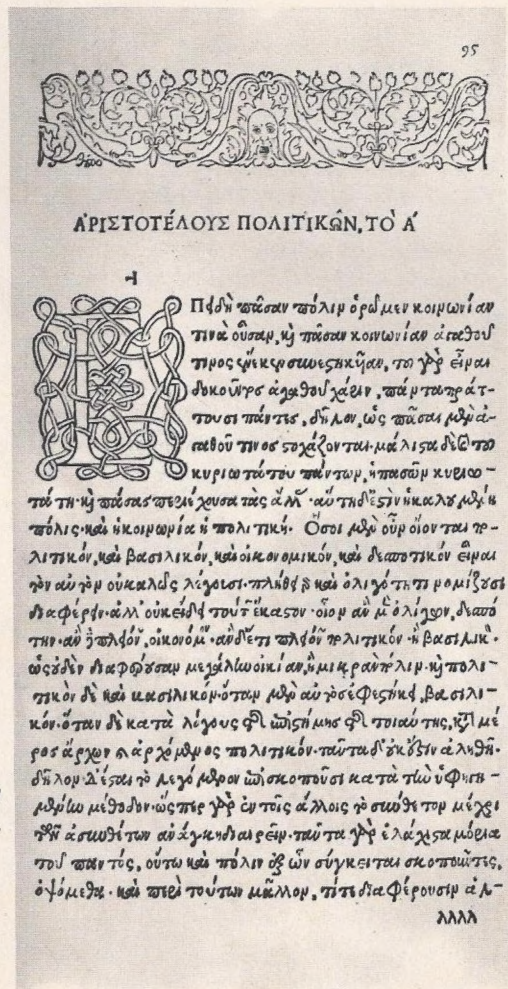 95
ἈΡΙΣΤΟΤΈΛΟΥΣ ΠΟΛΙΤΙΚΩ͂Ν, ΤΟ Ὰ
ΕΠειδὴ πᾶσαν πόλιν ὁρῶμεν κοινωνίαν
τινὰ οὖσαν, καὶ πᾶσαν κοινωνίαν ἀγαθοῦ
τινος ἕνεκεν συνεστηκῆαν, τοῦ γὰρ εἶναι
δοκοῦντος ἀγαθοῦ χάριν, πάντα πράτ-
τουσι πάντες, δῆλον, ὡς πᾶσαι μὲν ἀ-
γαθοῦ τινος στοχάζονται· μάλιστα δὲ καὶ τοῦ
κυριωτάτου πάντων, ἡ πασῶν κυριω-
τάτη· καὶ πάσας περιέχουσα τὰς ἄλλας· αὕτη δ' ἐστὶν ἡ καλουμένη
πόλις· καὶ ἡ κοινωνία ἡ πολιτική. Ὅσοι μὲν οὖν οἴονται πο-
λιτικόν, καὶ βασιλικόν, καὶ οἰκονομικόν, καὶ δεσποτικόν εἶναι
τὸν αὐτὸν οὐ καλῶς λέγουσι· πλήθει γὰρ καὶ ὀλιγότητι νομίζουσι
διαφέρειν· ἀλλ' οὐκ εἴδει τούτων ἕκαστον· οἷον ἂν μὲν ὀλίγων, δεσπό
την· ἂν δὲ πλειόνων, οἰκονόμον· ἂν δ' ἔτι πλειόνων πολιτικόν· ἢ βασιλικόν·
ὡς οὐδὲν διαφέρουσαν μεγάλην οἰκίαν, ἢ μικρὰν πόλιν· καὶ πολι-
τικὸν δὲ καὶ βασιλικόν· ὅταν μὲν αὐτὸς ἐφεστήκει, βασιλι-
κόν· ὅταν δὲ κατὰ λόγους τῆς ἐπιστήμης τῆς τοιαύτης, κατὰ μέ
ρος ἄρχων καὶ ἀρχόμενος πολιτικόν· ταῦτα δ' οὐκ ἔστιν ἀληθῆ·
δῆλον δ' ἔσται τὸ λεγόμενον ἐπισκοποῦσι κατὰ τὴν ὑφηγη-
μένην μέθοδον· ὥσπερ γὰρ ἐν τοῖς ἄλλοις τὸ σύνθετον μέχρι
τῶν ἀσυνθέτων ἀνάγκη διαιρεῖν· ταῦτα γὰρ ἐλάχιστα μόρια
τοῦ παντός, οὕτω καὶ πόλιν ἐξ ὧν σύγκειται σκοποῦντες,
ὀψόμεθα· καὶ περὶ τούτων μᾶλλον, τί τε διαφέρουσιν ἀλ-
λλλλ